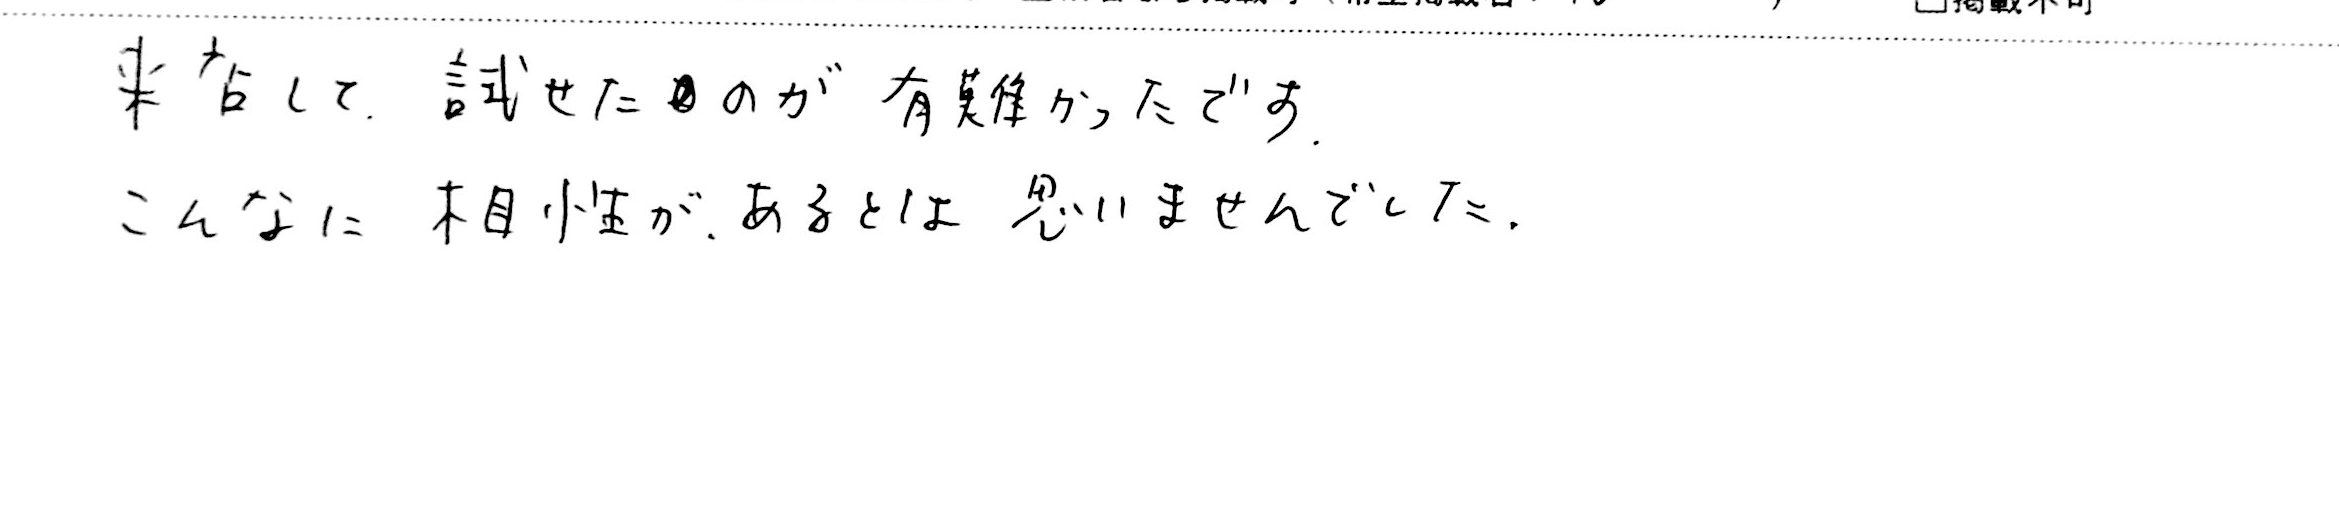 □掲載不可
来店して. 試せたのが 有難かったです.
こんなに 相性が. あるとは 思いませんでした.